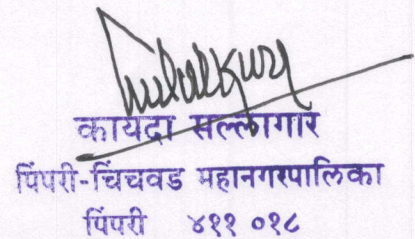 कायदा सल्लागार
पिंपरी-चिंचवड महानगरपालिका
पिंपरी ४११ ०१८